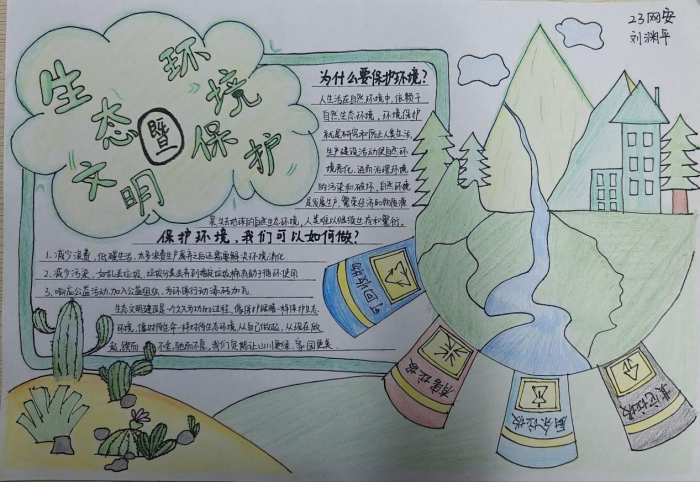 23网安
刘渊平
生态文明
暨
环境保护
为什么要保护环境?
人生活在自然环境中,依赖于
自然生态环境,环境保护
就是研究和防止人类生活、
生产建设活动使自然环
境恶化,进而治理环境
的污染和破坏,自然环境
是发展生产、繁荣经济的物质源
是生活地球的自然生态环境,人类难以维继生态和繁衍。
保护环境,我们可以如何做?
1、减少浪费,低碳生活,太多浪费生产废弃之后还需要解决环境消化
2、减少污染,如乱丢垃圾,垃圾分类丢弃到指定垃圾桶有助于循环使用
3、响应公益活动,加入公益组织,为环保行动添砖加瓦
生态文明建设是一个久久为功的过程,像保护眼睛一样保护生态
环境,像对待生命一样对待生态环境,从自己做起,从现在做
起,锲而不舍,驰而不息,我们负就让山川更绿,家园更美.
可回收物
有害垃圾
厨余垃圾
其它垃圾